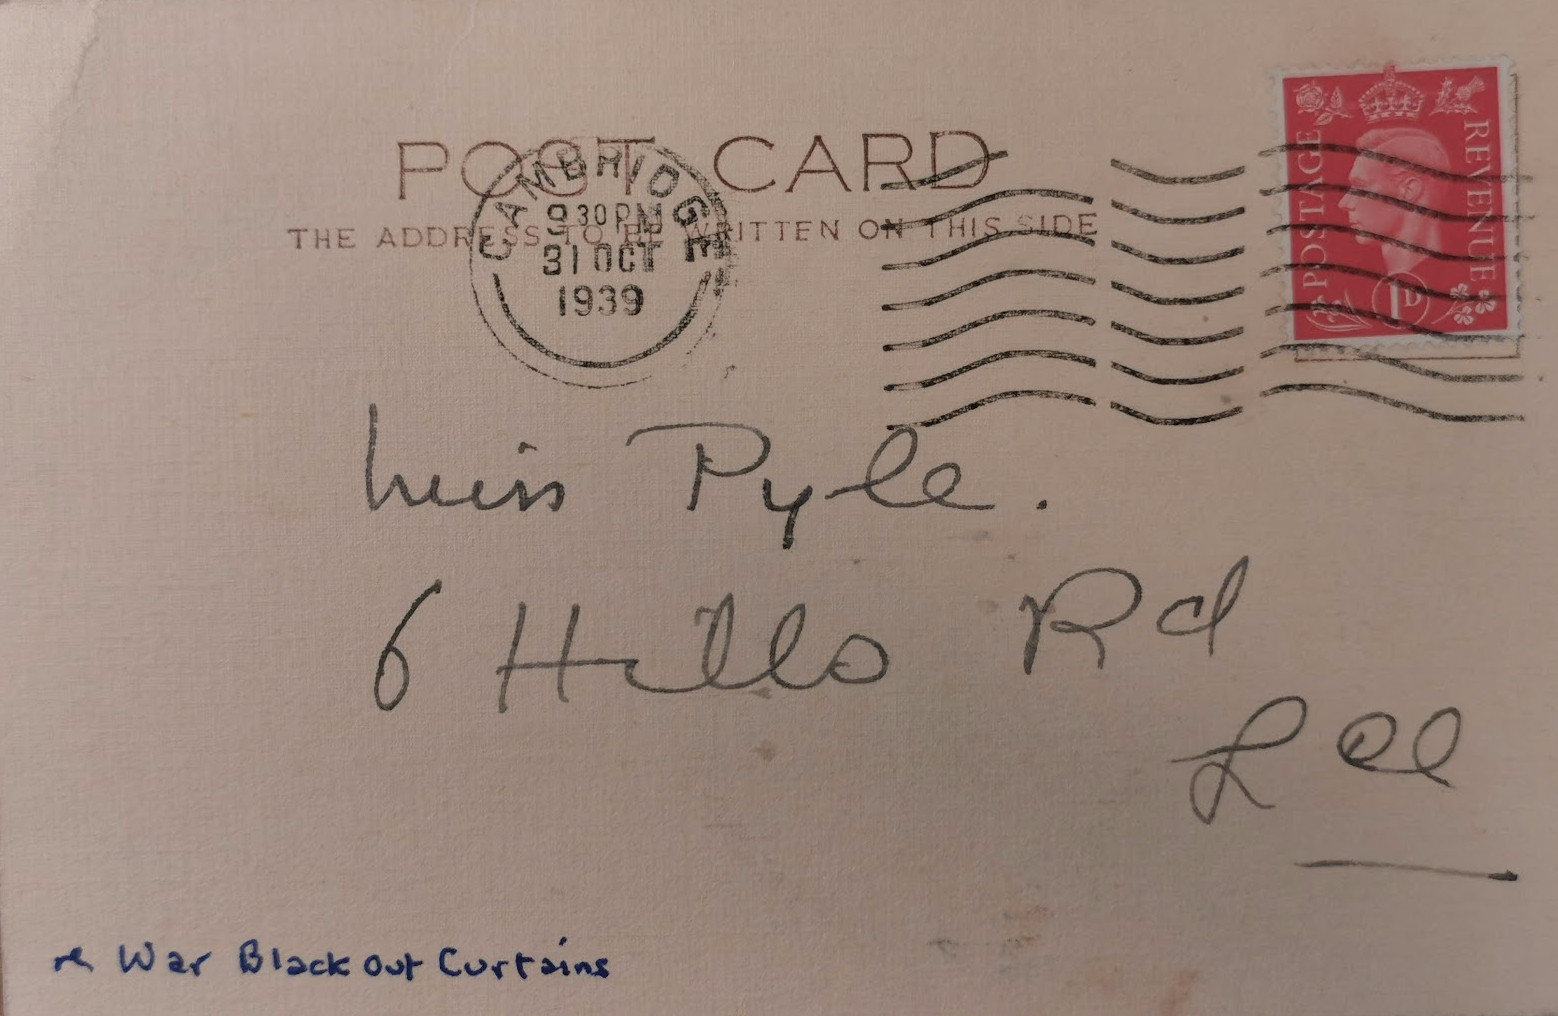 POST CARD
THE ADDRESS TO BE WRITTEN ON THIS SIDE
CAMBRIDGE
9 30 PM
31 OCT
1939
POSTAGE
REVENUE
1D
Miss Pyle.
6 Hills Rd
Lee
re War Black out Curtains